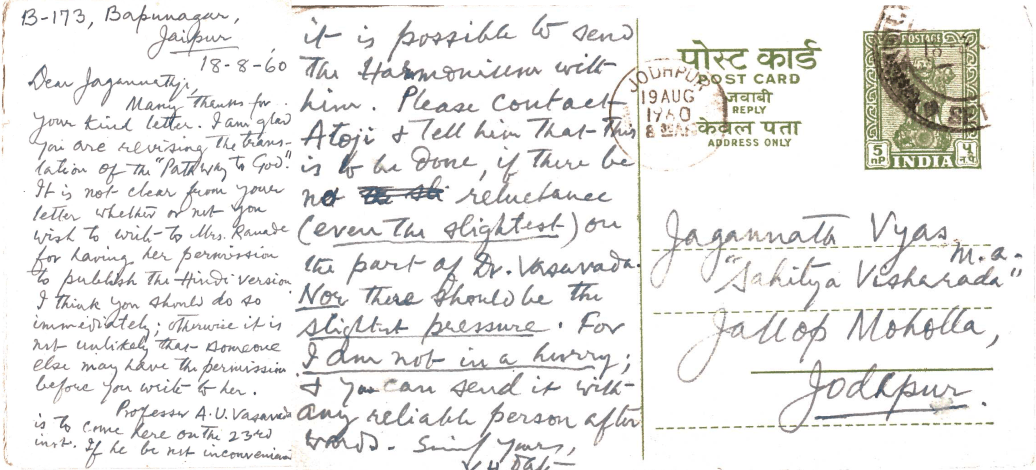 B-173, Bapunagar,
Jaipur
18-8-60
Dear Jagannathji,
Many thanks for
your kind letter. I am glad
you are revising the trans-
lation of the "Pathway to God".
It is not clear from your
letter whether or not you
wish to write to Mrs. Ranade
for having her permission
to publish the Hindi version
I think you should do so
immediately; otherwise it is
not unlikely that someone
else may have the permission
before you write to her.
Professor A.U. Vasavada
is to come here on the 23rd
inst. If he be not inconvenian
it is possible to send
the Harmonium with
him. Please contact
Atoji & tell him that this
is to be done, if there be
not reluctance
(even the slightest) on
the part of Dr. Vasavada.
Nor there should be the
slightest pressure. For
I am not in a hurry;
& you can send it with
any reliable person after
words. Yours,
पोस्ट कार्ड
POST CARD
जवाबी
REPLY
केवल पता
ADDRESS ONLY
JODHPUR
19 AUG
1960
POSTAGE
5 NP
INDIA
५ न.प.
Jagannath Vyas,
M.A.
"Sahitya Visharada"
Jallop Moholla,
Jodhpur.